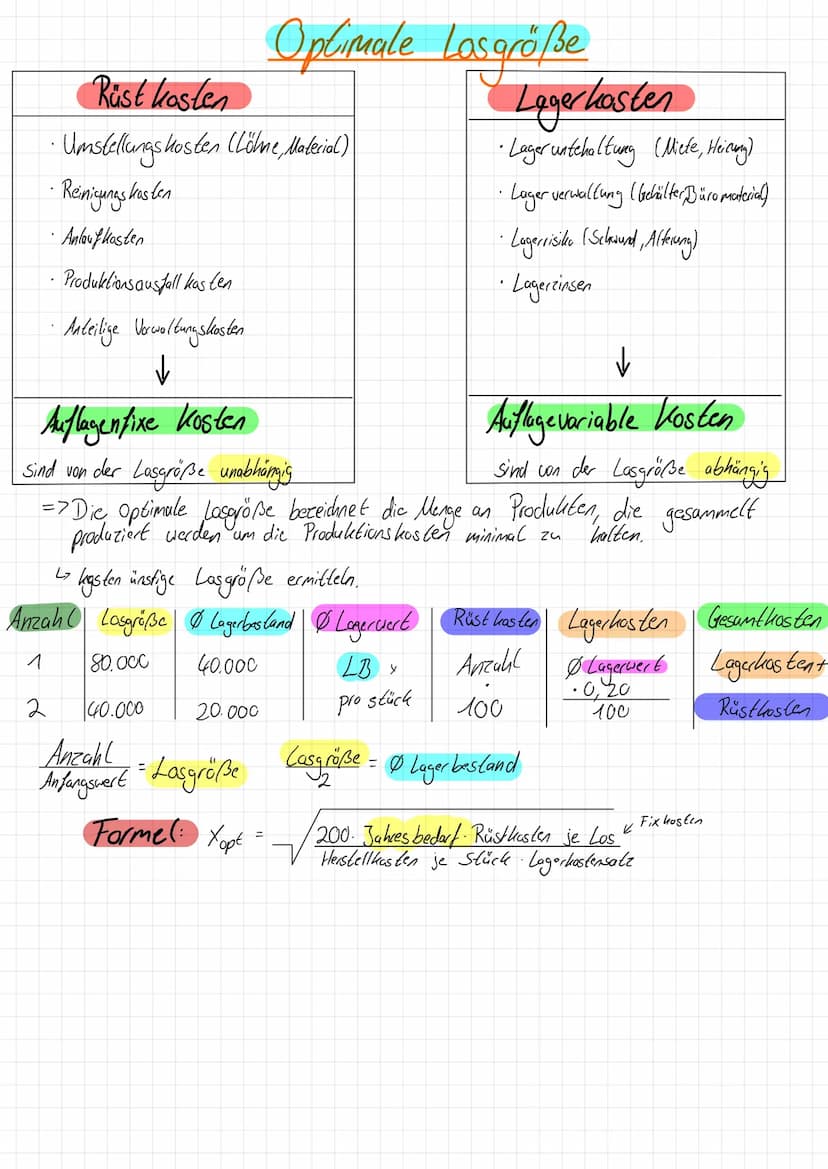 Optimale Losgröße
Rüstkosten
· Umstellungskosten (Löhne, Material)
· Reinigungskosten
· Anlaufkosten
· Produktionsausfallkosten
· Anteilige Verwaltungskosten
↓
Auflagenfixe Kosten
sind von der Losgröße unabhängig
Lagerkosten
· Lagerunterhaltung (Miete, Heizung)
· Lagerverwaltung (Gehälter, Büromaterial)
· Lagerrisiko (Schwund, Alterung)
· Lagerzinsen
↓
Auflagevariable Kosten
sind von der Losgröße abhängig
=> Die Optimale Losgröße bezeichnet die Menge an Produkten, die gesammelt
produziert werden um die Produktionskosten minimal zu halten.
↳ kosten ünstige Losgröße ermitteln.
Anzahl | Losgröße | Ø Lagerbestand | Ø Lagerwert | Rüstkosten | Lagerkosten | Gesamtkosten
1 80.000 40.000 LB x Anzahl Ø Lagerwert Lagerkosten +
2 40.000 20.000 pro stück · 100 · 0,20 / 100 Rüstkosten
Anzahl / Anfangswert = Losgröße Losgröße / 2 = Ø Lagerbestand
Formel: Xopt = √ 200 · Jahresbedarf · Rüstkosten je Los ↙ Fixkosten
Herstellkosten je Stück · Lagerkostensatz